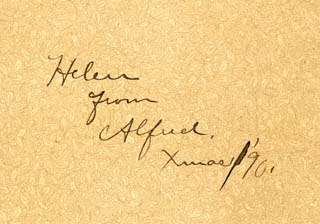 Helen
from
Alfred.
Xmas '90.